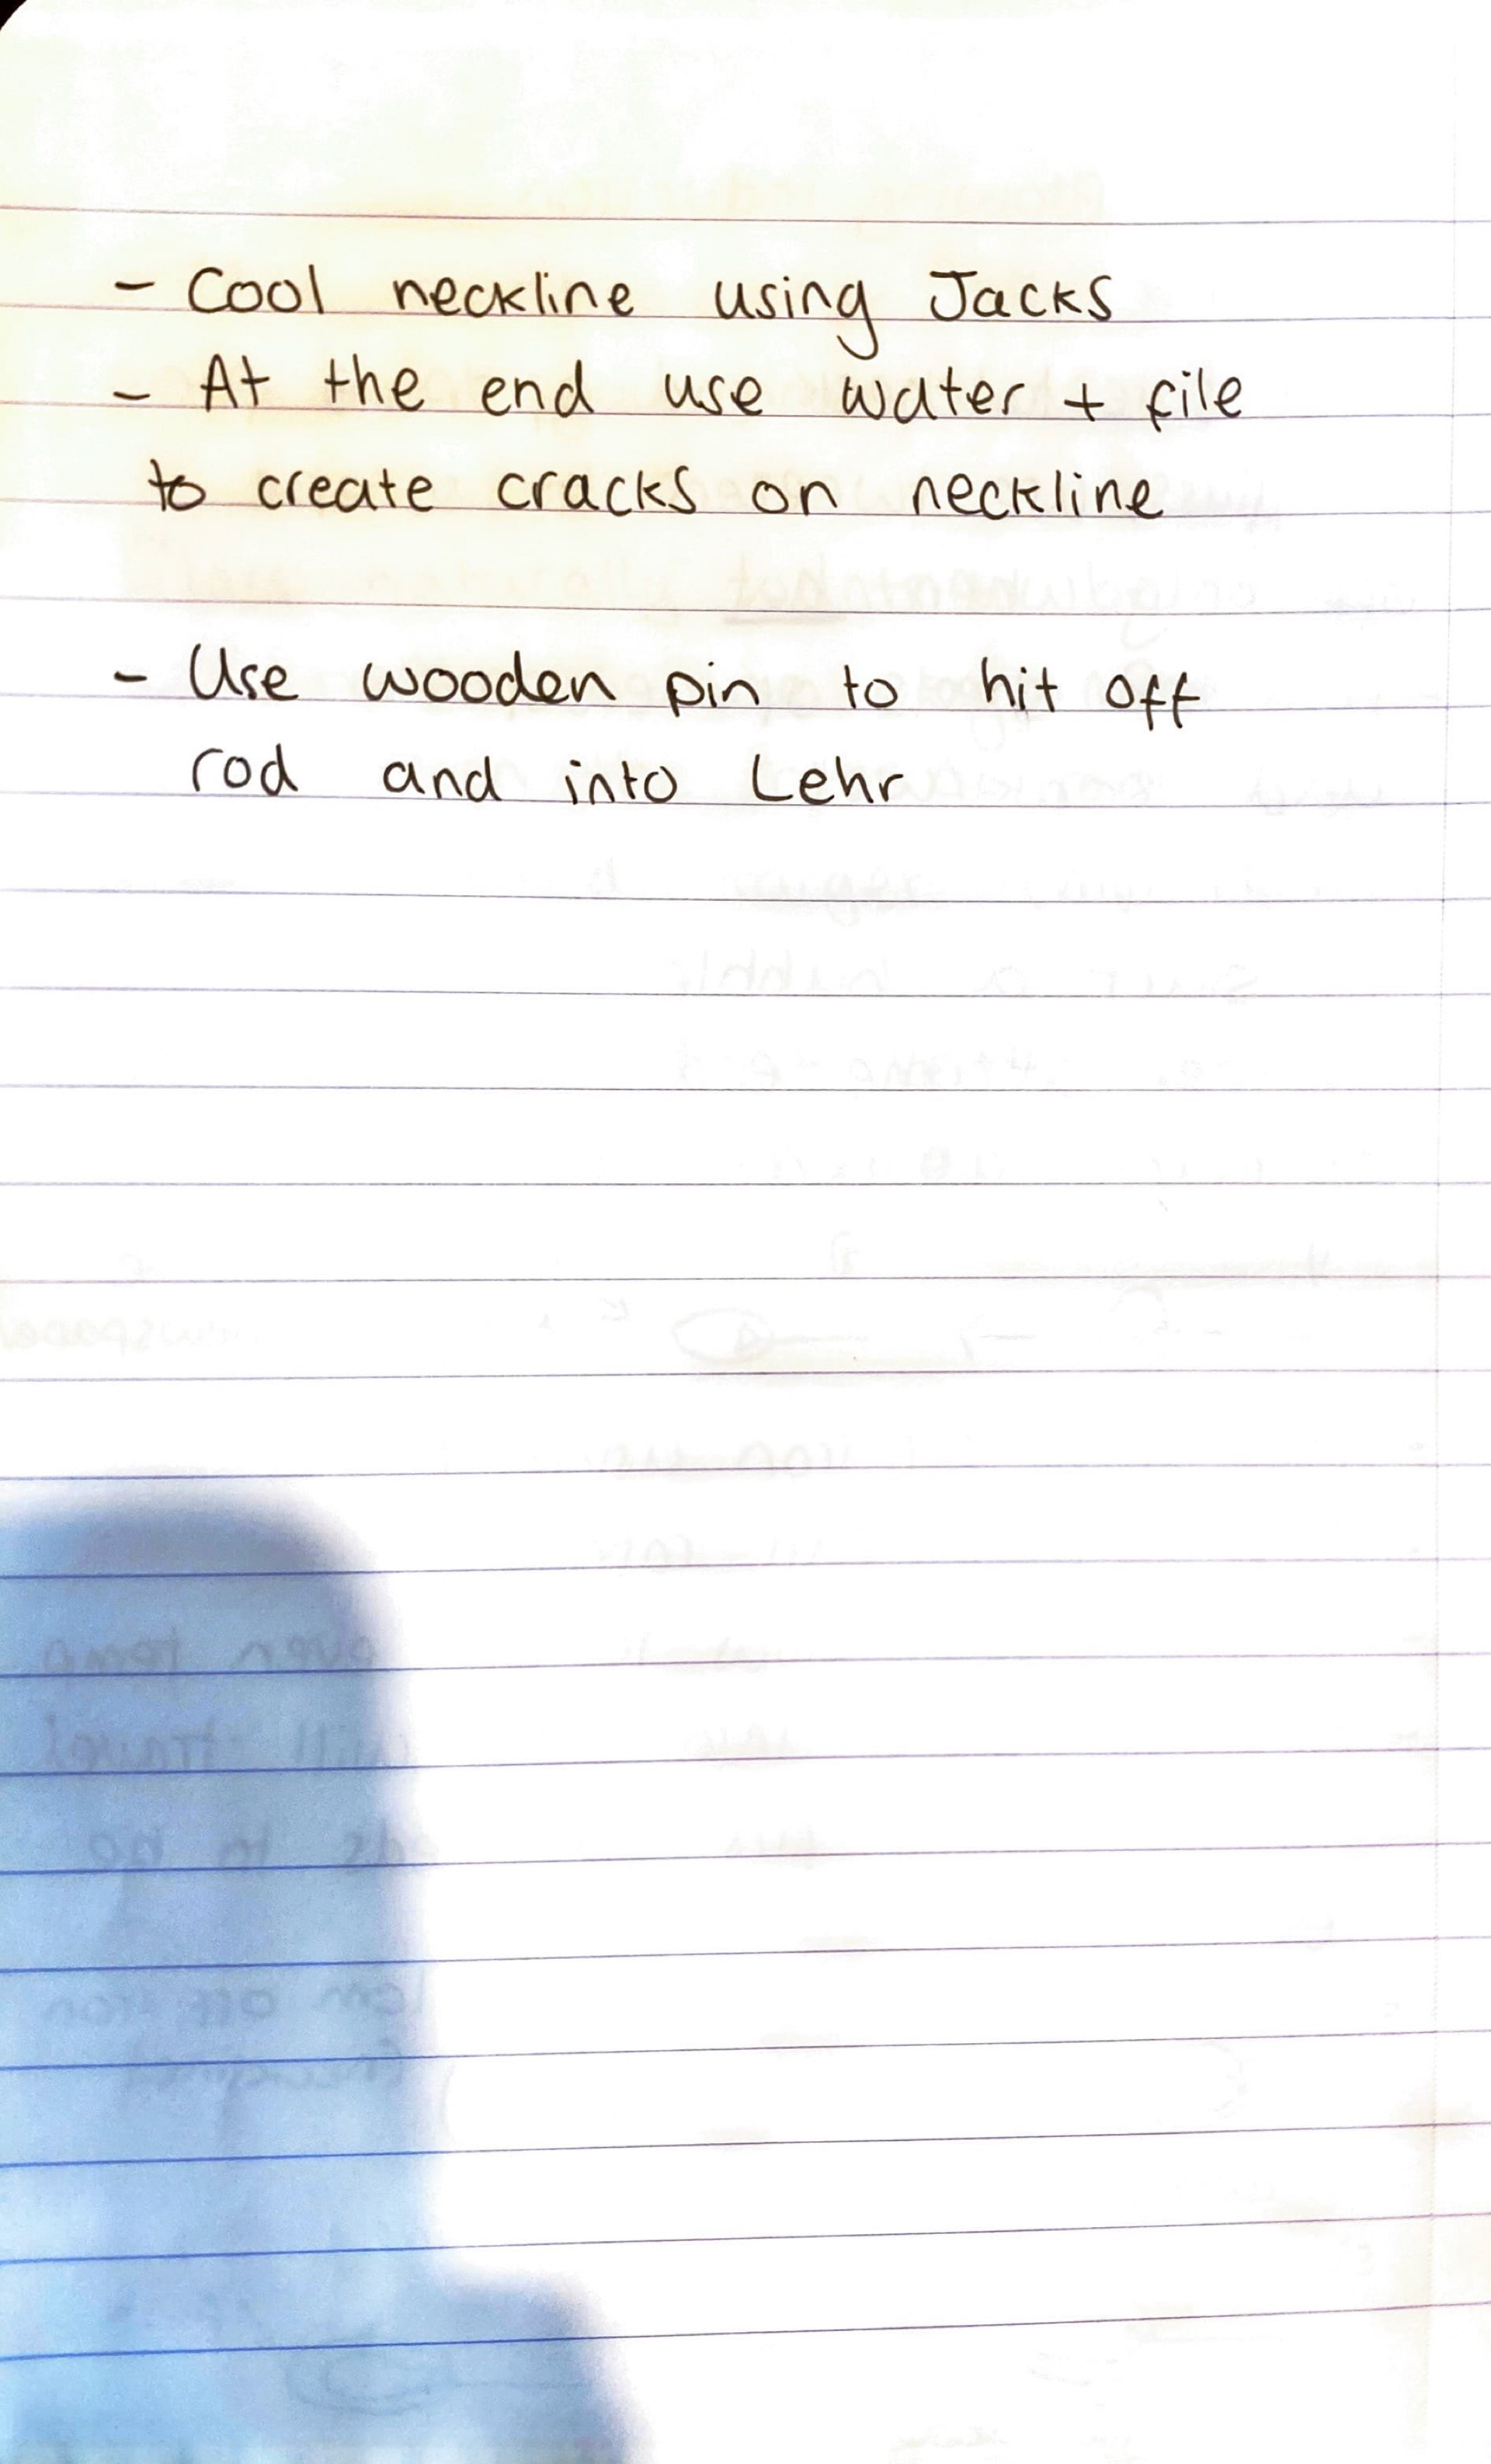 - Cool neckline using Jacks
- At the end use water + file
to create cracks on neckline
- Use wooden pin to hit off
rod and into Lehr